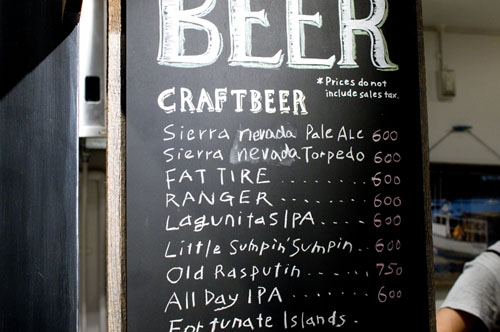 BEER
* Prices do not
include sales tax.
CRAFTBEER
Sierra nevada Pale Ale 600
Sierra nevada Torpedo 600
FAT TIRE ........ 600
RANGER ......... 600
Lagunitas IPA .... 600
Little Sumpin' Sumpin .. 600
Old Rasputin ...... 750
All Day IPA ..... 600
Fortunate Islands.